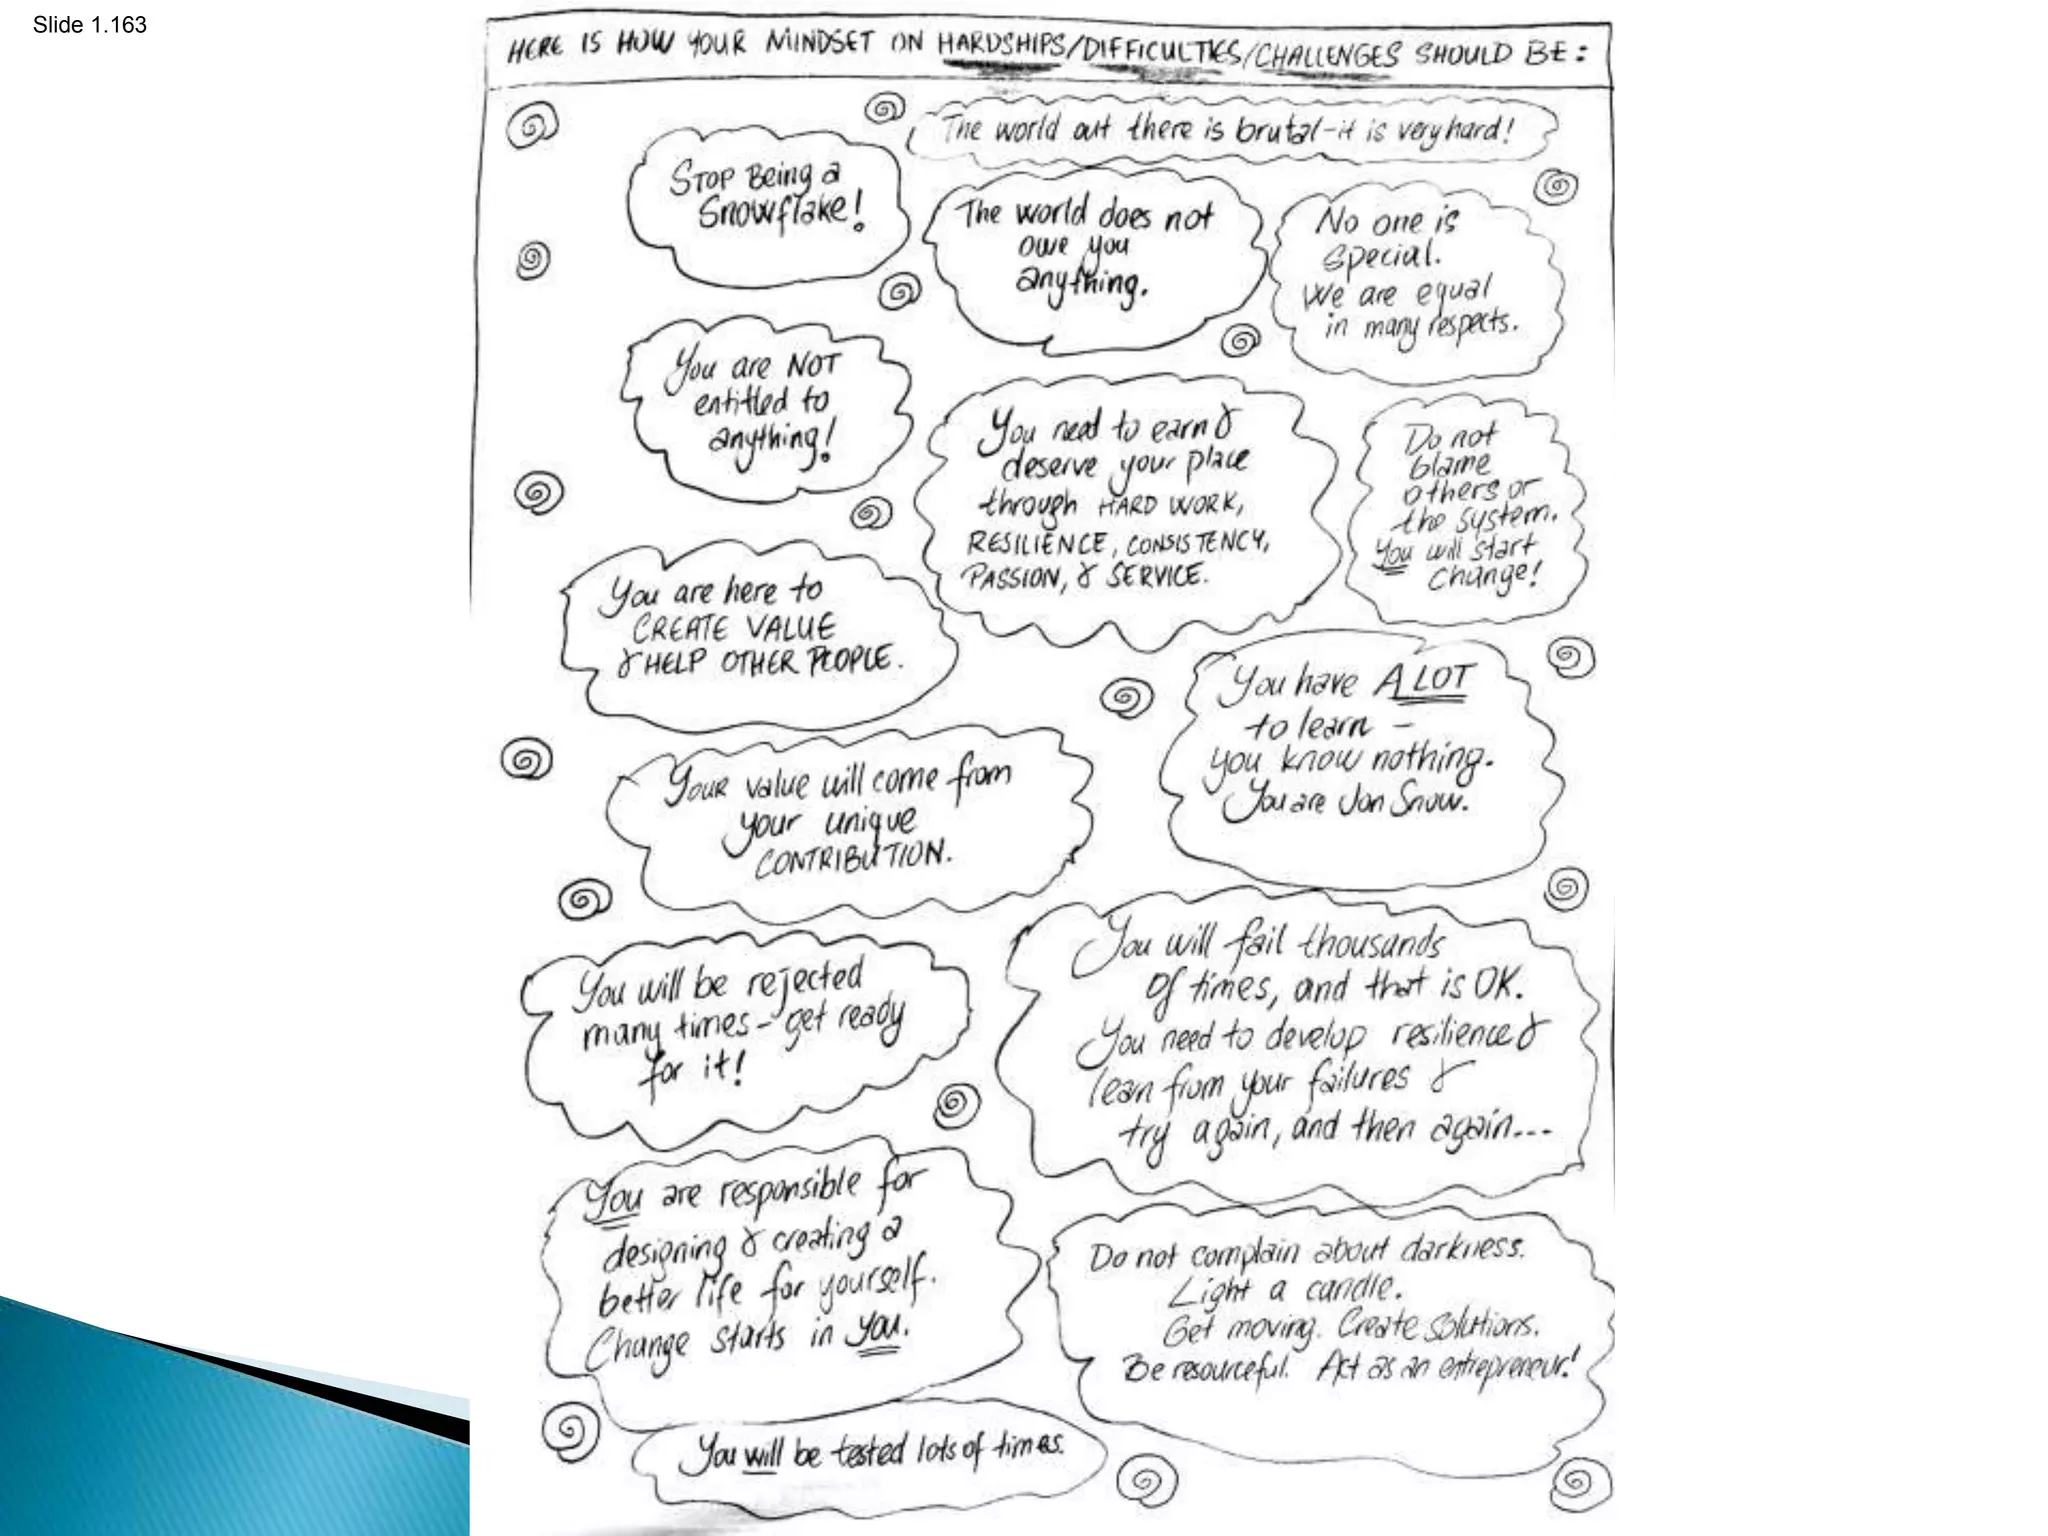 Slide 1.163
HERE IS HOW YOUR MINDSET ON HARDSHIPS/DIFFICULTIES/CHALLENGES SHOULD BE:
The world out there is brutal-it is very hard!
Stop Being a
Snowflake!
The world does not
owe you
anything.
No one is
special.
We are equal
in many respects.
You are NOT
entitled to
anything!
You need to earn &
deserve your place
through HARD WORK,
RESILIENCE, CONSISTENCY,
PASSION, & SERVICE.
Do not
blame
others or
the system.
You will start
change!
You are here to
CREATE VALUE
& HELP OTHER PEOPLE.
You have A LOT
to learn -
you know nothing.
You are Jon Snow.
Your value will come from
your unique
CONTRIBUTION.
You will be rejected
many times - get ready
for it!
You will fail thousands
of times, and that is OK.
You need to develop resilience &
learn from your failures &
try again, and then again...
You are responsible for
designing & creating a
better life for yourself.
Change starts in you.
Do not complain about darkness.
Light a candle.
Get moving. Create solutions.
Be resourceful. Act as an entrepreneur!
You will be tested lots of times.